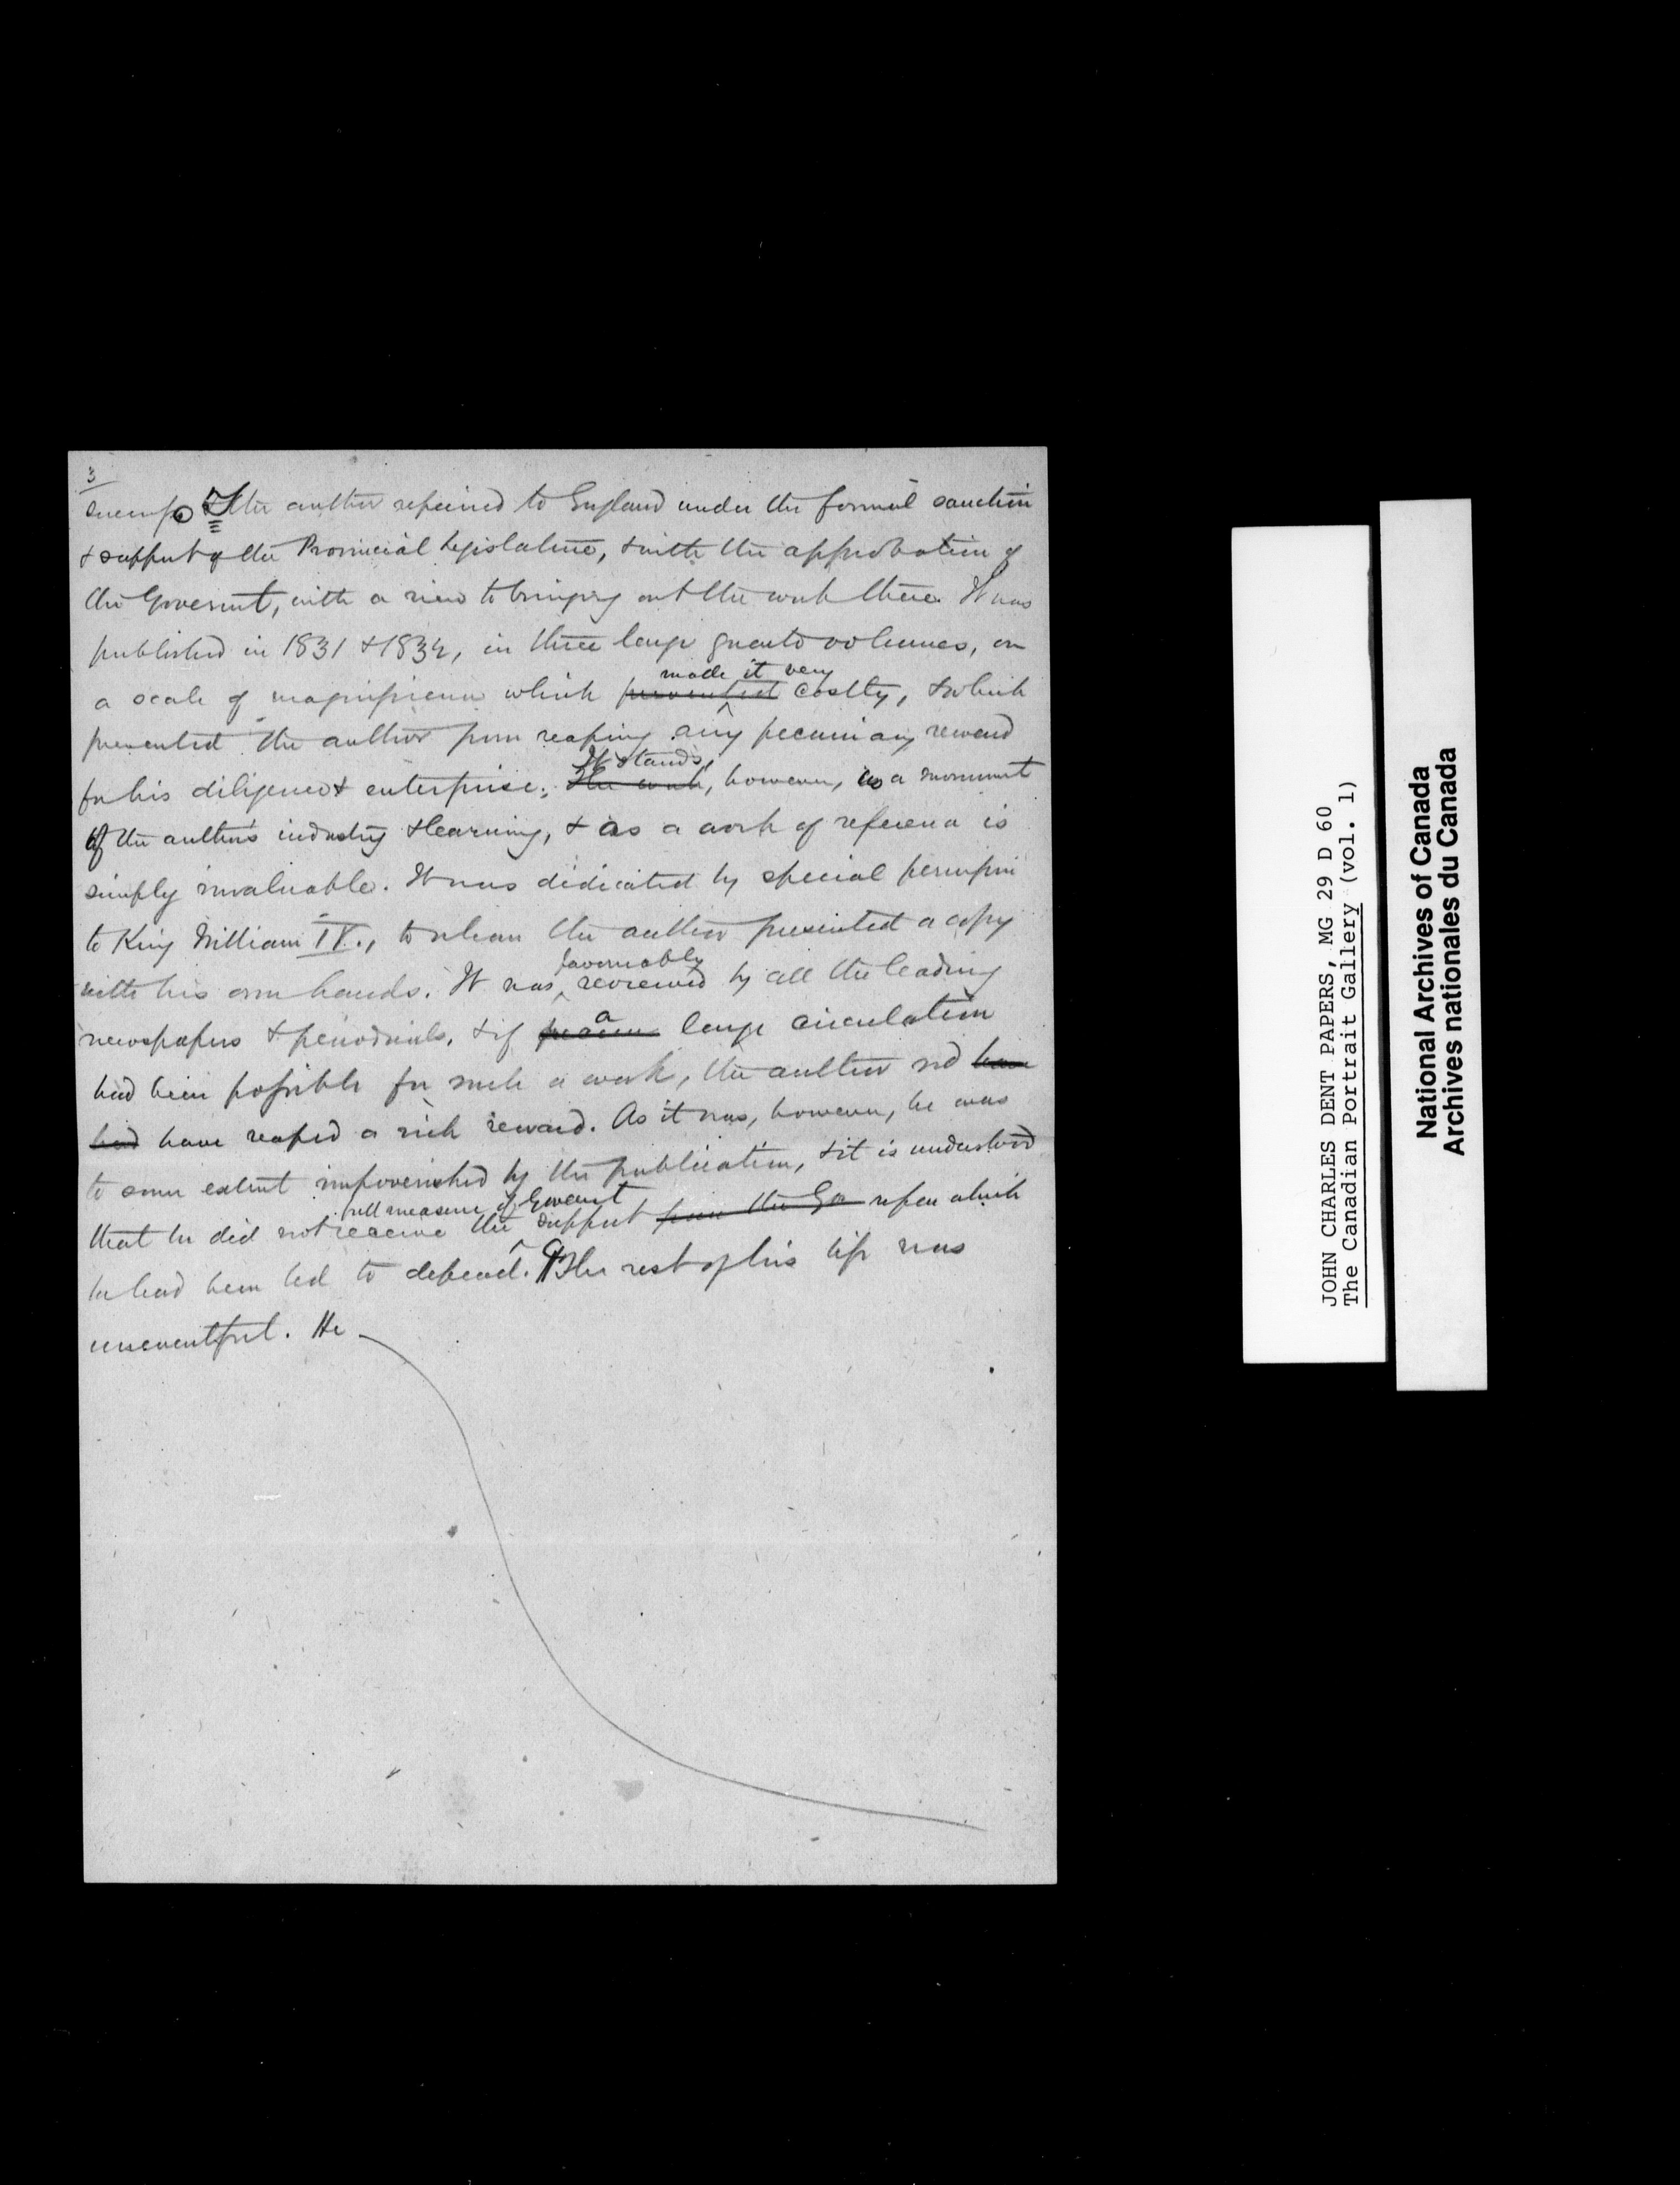 3
success. The author repaired to England under the formal sanction
& support of the Provincial Legislature, & with the approbation of
the Goverment, with a view to bringing out the work there. It was
published in 1831 & 1832, in three large quarto volumes, on
made it very
a scale of magnificence which prevented costly, & which
prevented the author from reaping any pecuniary reward
It stands,
for his diligence & enterprise. The work, however, as a monument
of the author's industry & learning, & as a work of reference is
simply invaluable. It was dedicated by special permission
to King William IV., to whom the author presented a copy
favourably
with his own hands. It was reviewed by all the leading
a
newspapers & periodicals, & if large circulation
had been possible for such a work, the author wd have
had have reaped a rich reward. As it was, however, he was
to some extent impoverished by the publication, & it is understood
full measure of Goverment
that he did not receive the support from the Go upon which
he had been led to depend. The rest of his life was
uneventful. He
JOHN CHARLES DENT PAPERS, MG 29 D 60
The Canadian Portrait Gallery (vol. 1)
National Archives of Canada
Archives nationales du Canada